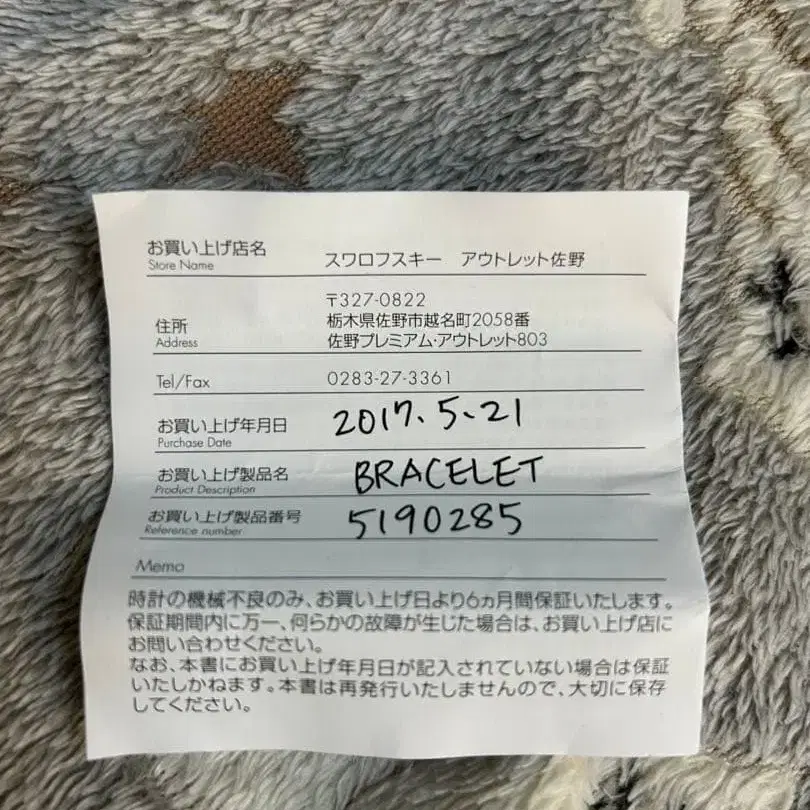 お買い上げ店名 スワロフスキー アウトレット佐野
Store Name
〒327-0822
住所 栃木県佐野市越名町2058番
Address 佐野プレミアム・アウトレット803
Tel/Fax 0283-27-3361
お買い上げ年月日 2017.5.21
Purchase Date
お買い上げ製品名 BRACELET
Product Description
お買い上げ製品番号 5190285
Reference number
Memo
時計の機械不良のみ、お買い上げ日より6ヵ月間保証いたします。
保証期間内に万一、何らかの故障が生じた場合は、お買い上げ店に
お問い合わせください。
なお、本書にお買い上げ年月日が記入されていない場合は保証
いたしかねます。本書は再発行いたしませんので、大切に保存
してください。